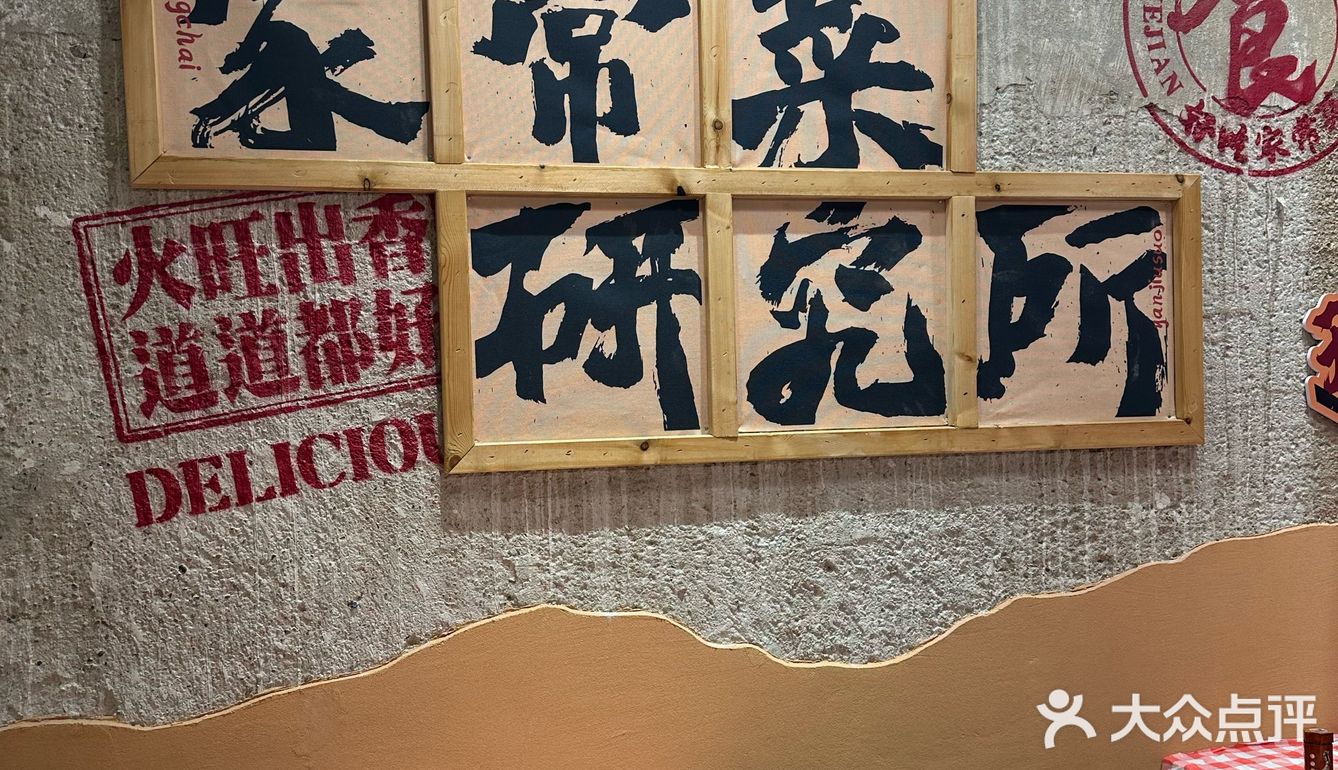 家常菜
研究所
yanjiusuo
火旺出香
道道都好
DELICIOU
EJIAN
食
大众点评